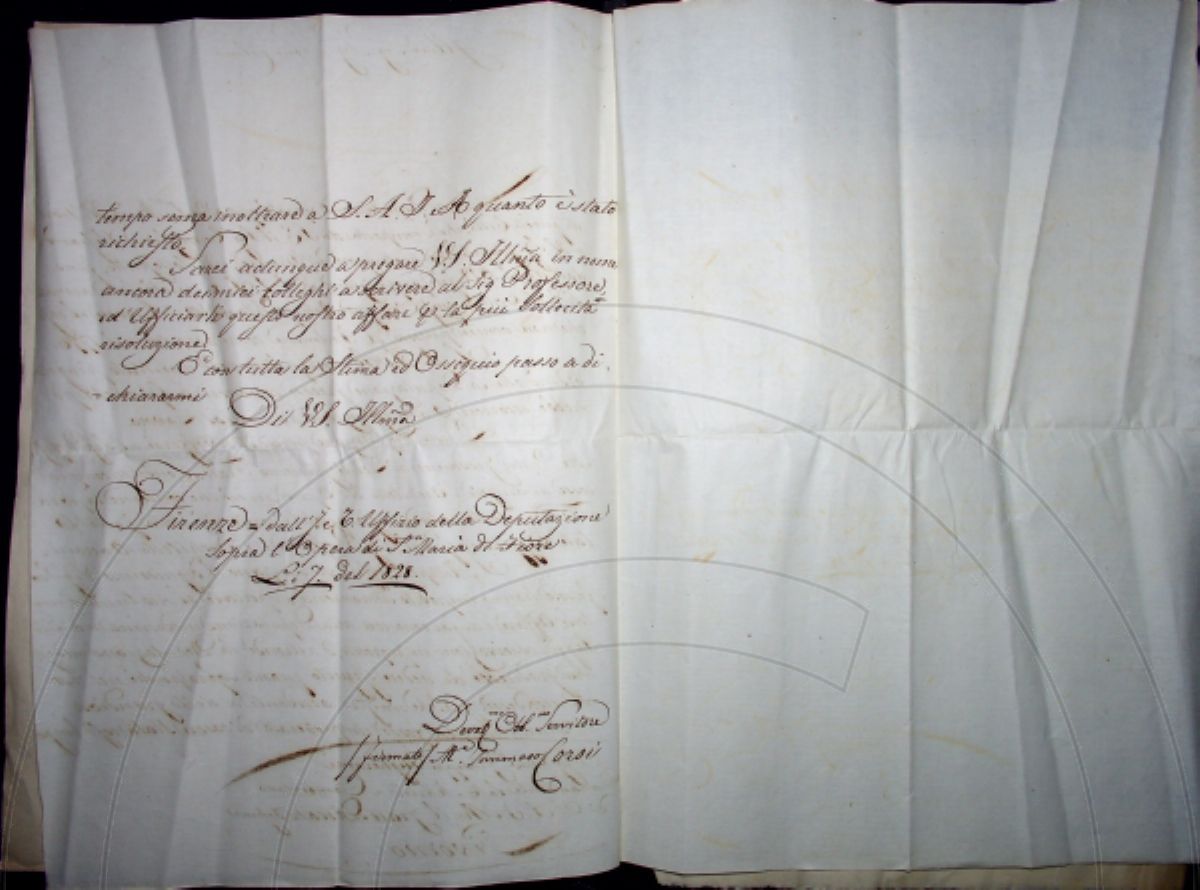 tempo senza inoltrare a S. A. I. R. quanto è stato
richiesto.
Sarei adunque a pregare V.S. Illma in nome
ancora de miei Colleghi a scrivere al Sig Professore,
ed Ufficiarlo questo nostro affare p la più sollecita
risoluzione
E con tutta la Stima ed Ossequio passo a di-
chiararmi
Di V.S. Illma
Firenze = dall'I. e R. Uffizio della Deputazione
sopra l'Opera di Sta Maria del Fiore
Li 7. del 1828.
Devmo Obbmo Servitore
/firmato/ Me. Tommaso Corsi